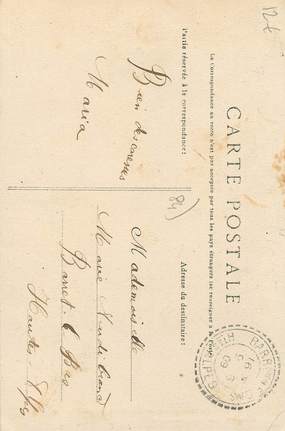 12€
CARTE POSTALE
La Correspondance au recto n'est pas acceptée par tous les pays étrangers (se renseigner à la Poste)
Partie réservée à la correspondance:
Adresse du destinataire:
Bien des caresses
Maria
84
Mademoiselle
Marie
Barret-le-Bas
Hautes Alpes
BARRET